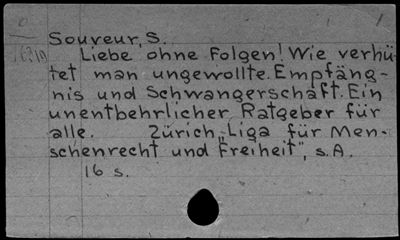 Souveur, S.
Liebe ohne Folgen! Wie verhü-
tet man ungewollte Empfäng-
nis und Schwangerschaft. Ein
unentbehrlicher Ratgeber für
alle. Zürich, „Liga für Men-
schenrecht und Freiheit", s.A.
16 s.